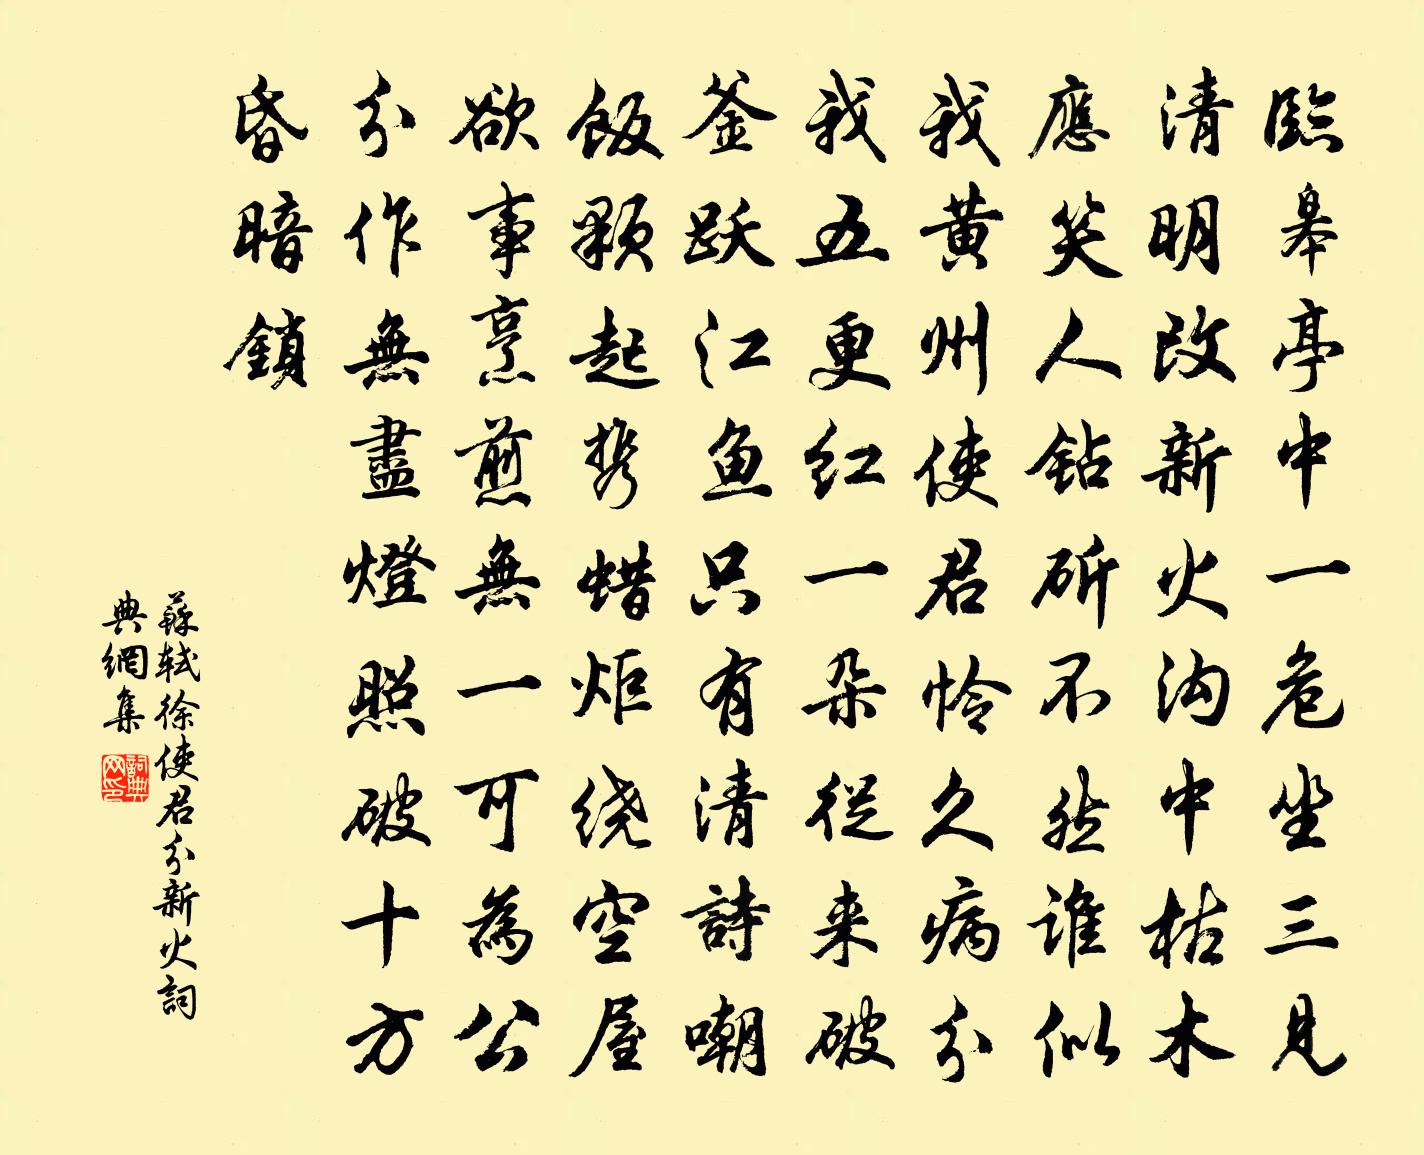 臨皋亭中一危坐三見
清明改新火沟中枯木
應笑人钻斫不然谁似
我黄州使君怜久病分
我五更红一朵從来破
釜跃江鱼只有清詩嘲
飯顆起携蜡炬绕空屋
欲事烹煎無一可為公
分作無盡燈照破十方
昏暗鎖
蘇轼徐使君分新火詞
典網集
詞典
网印